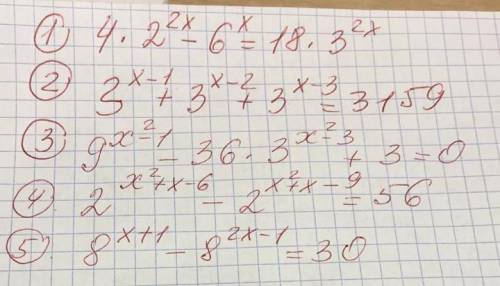 ① 4 · 2^{2x} - 6^{x} = 18 · 3^{2x}
② 3^{x-1} + 3^{x-2} + 3^{x-3} = 3159
③ 9^{x^2-1} - 36 · 3^{x^2-3} + 3 = 0
④ 2^{x^2+x-6} - 2^{x^2+x-9} = 56
⑤ 8^{x+1} - 8^{2x-1} = 30